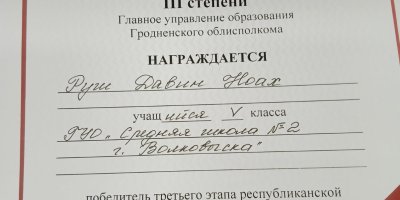 III степени
Главное управление образования
Гродненского облисполкома
НАГРАЖДАЕТСЯ
Руш Давин Ноах
учащийся V класса
ГУО „Средняя школа №2
г. Волковыска"
победитель третьего этапа республиканской